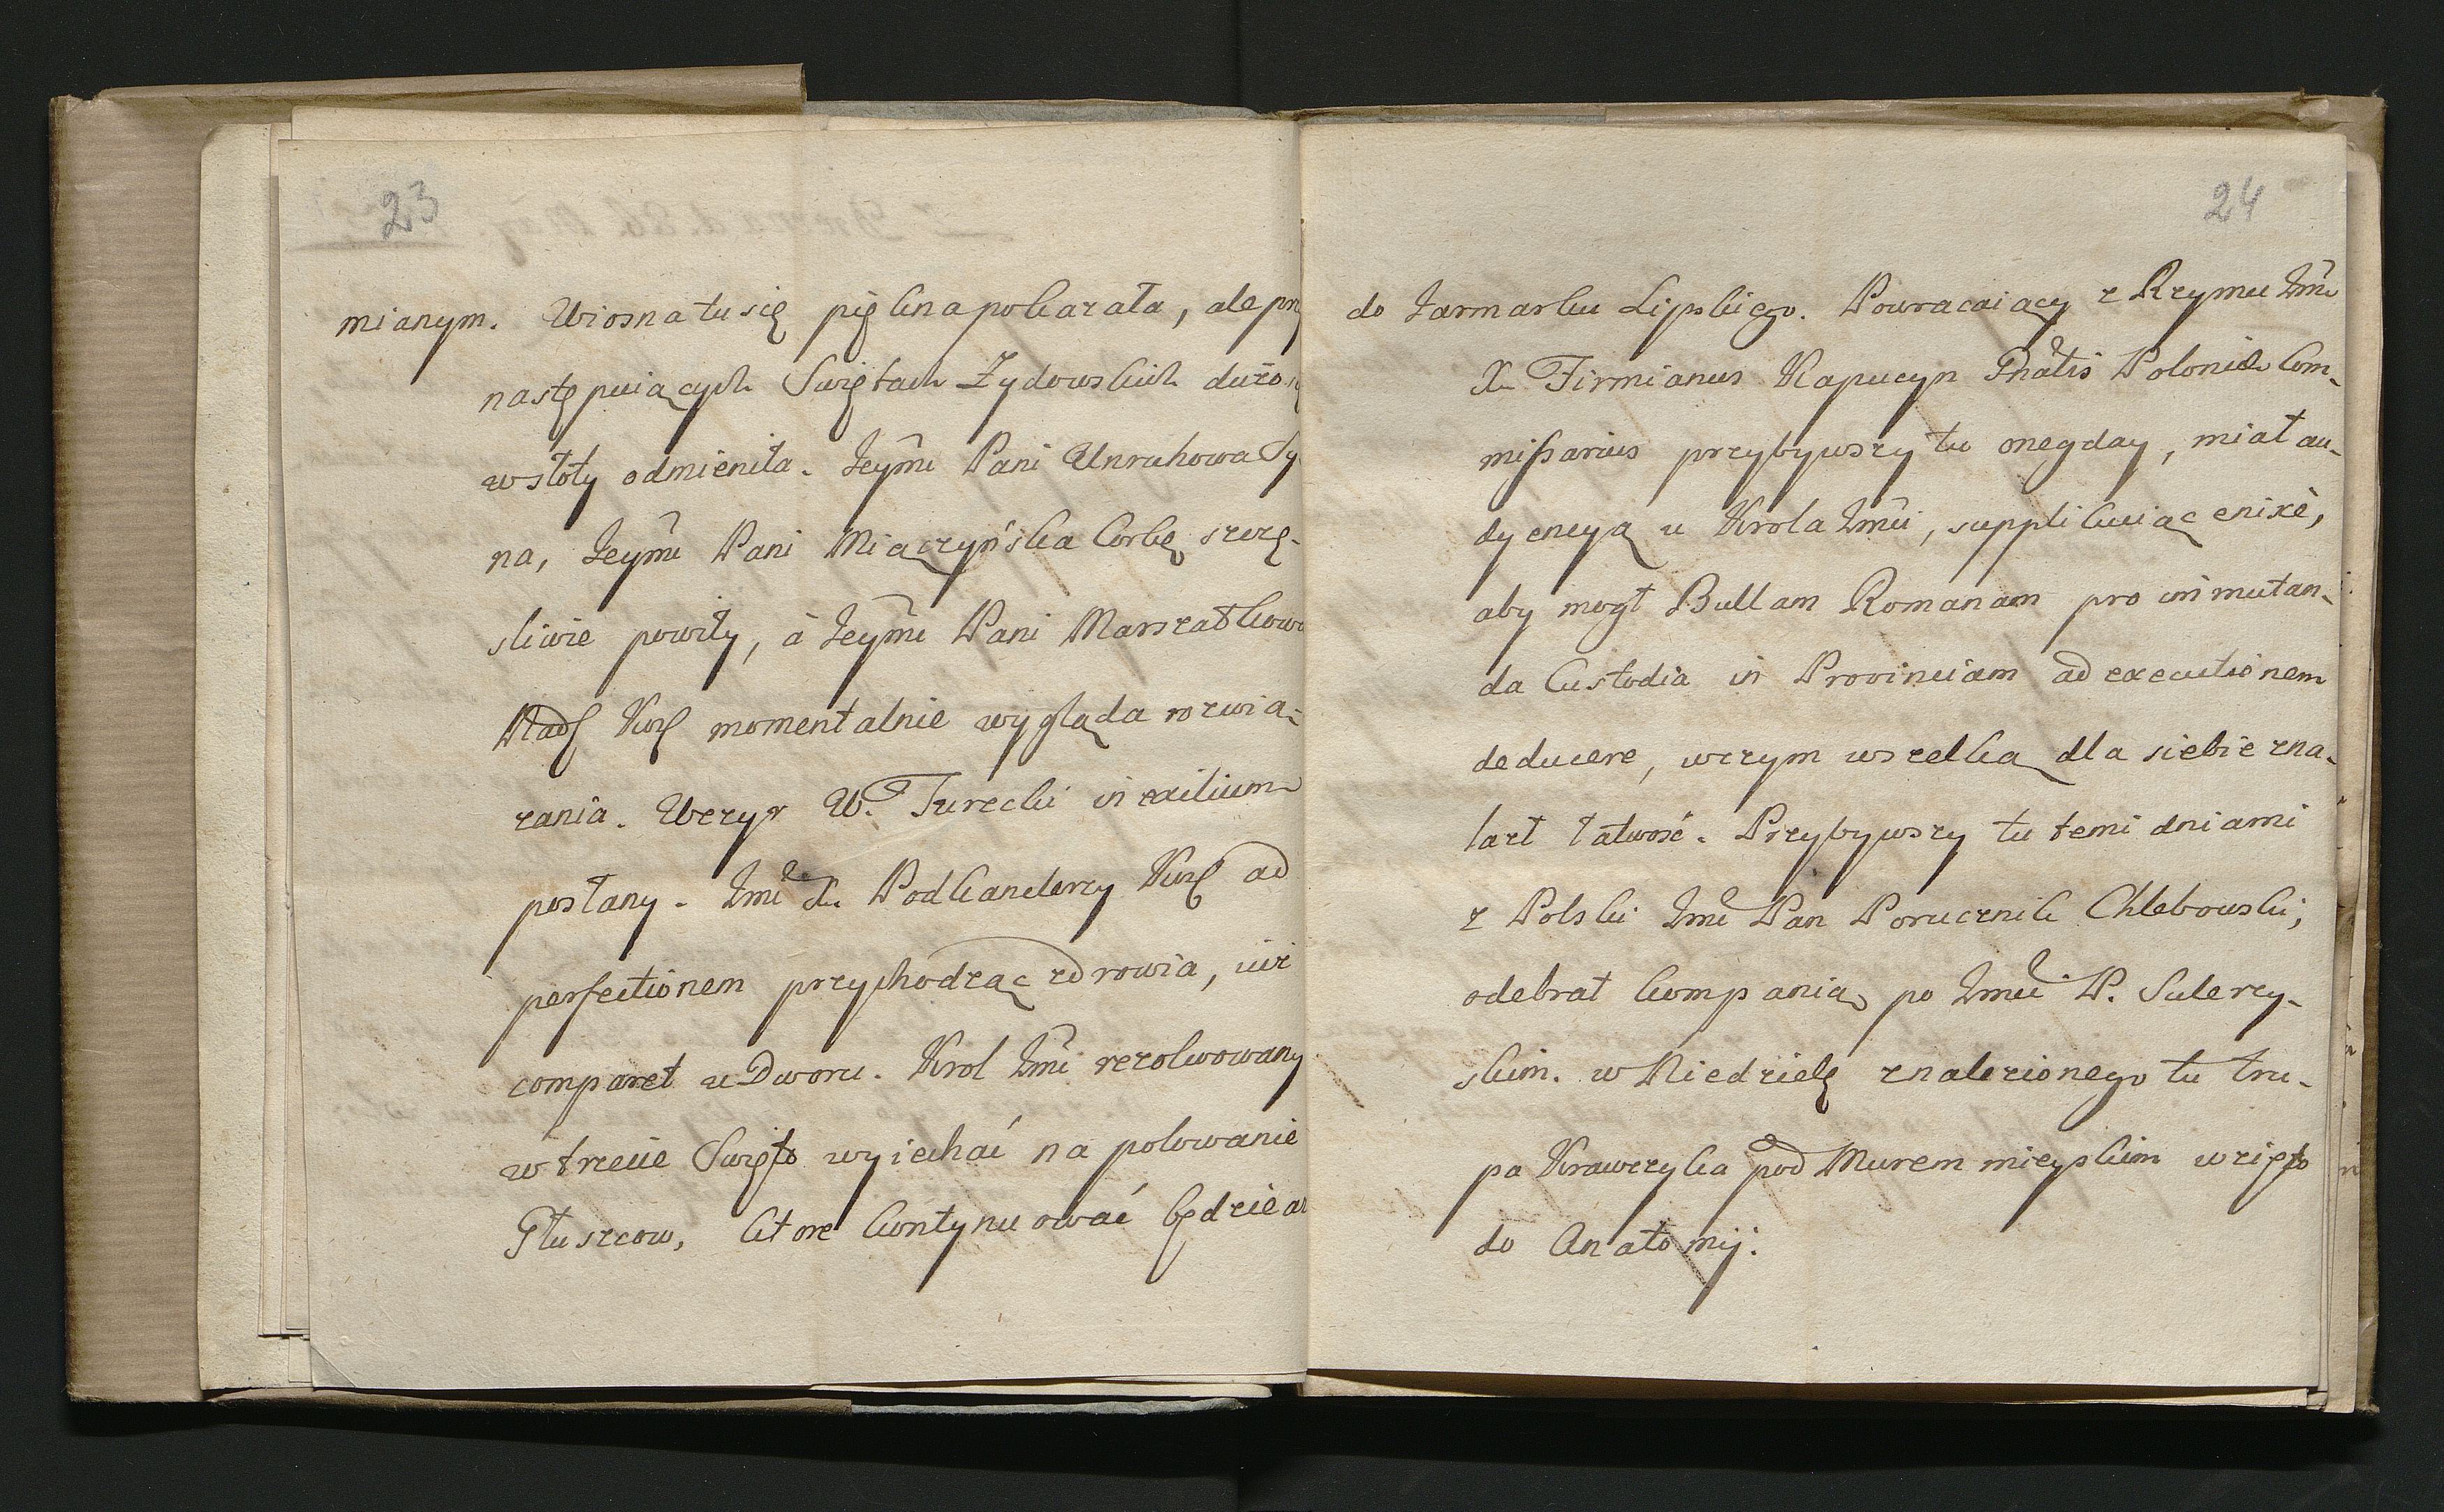 23
mianym. Wiosna tu się piękna pokazała, ale prz
następuiących Swiętach Żydowskich dużo s
w słoty odmieniła. Jeymć Pani Unruhowa Sy
na, Jeymć Pani Miączyńska Corkę szczę-
sliwie powiły, á Jeymć Pani Marszałkowa
Nadſ Korſ momentalnie wygląda rozwia-
zania. Wezyr W. Turecki in exilium
posłany. Jmć X. Podkanclerzy Korſ ad
perfectionem przychodząc zdrowia, iuż
comparet u Dworu. Krol Jmć rezolwowany
w trzecie Swięto wyiechać na polowanie
Głuszcow, ktore kontynuować będzie aż
24
do Jarmarku Lipskiego. Powracaiący z Rzymu Jmć
X. Firmianus Kapucyn Gnalis Poloniæ Com-
missarius przybywszy tu onegday, miał au-
dyencyą u Krola Jmći, supplikuiąc enixè,
aby mogł Bullam Romanam pro immutan-
da Custodia in Provinciam ad executionem
deducere, w czym wszelką dla siebie zna-
lazł łatwość. Przybywszy tu temi dniami
z Polski Jmć Pan Porucznik Chlebowski,
odebrał kompanią po Jmći P. Sulerzy-
skim. w Niedzielę znalezionego tu tru-
pa Krawczyka pod Murem mieyskim wzięto
do Anatomij.